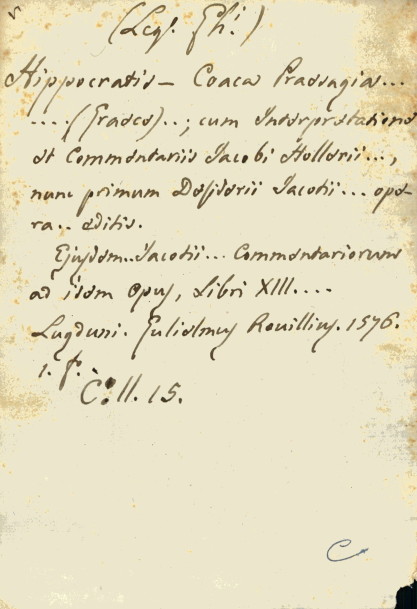 (Legs. Gh.i)
Hippocratis — Coaca Praesagia...
....(Graece)..; cum Interpretatione
et Commentariis Jacobi Hollerii...,
nunc primum Desiderii Jacotii... ope-
ra.. editis.
Ejusdem.. Jacotii... Commentariorum
ad idem Opus, Libri XIII....
Lugduni. Gulielmus Rouillius. 1576.
1. f.
C. 11. 15.
C